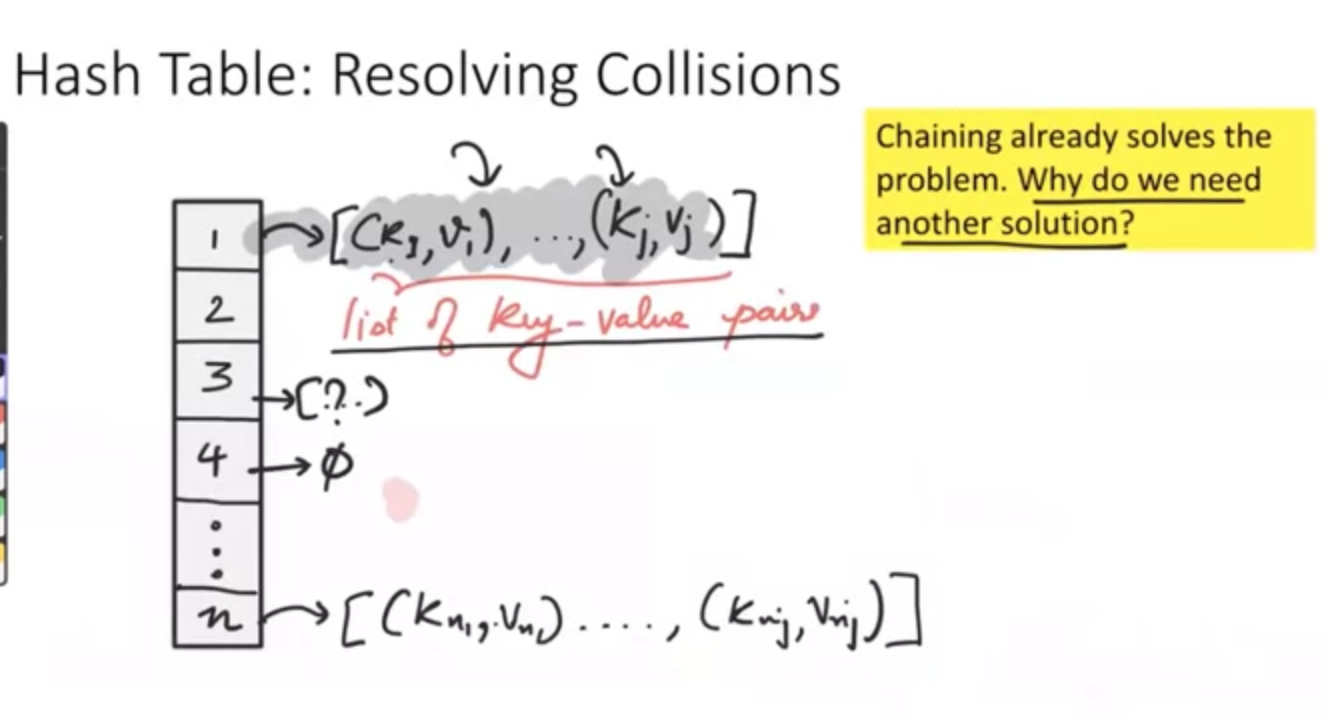 Hash Table: Resolving Collisions
Chaining already solves the
problem. Why do we need
another solution?
1 → [(k₁, v₁), ..., (kⱼ, vⱼ)]
list of key-value pairs
2
3 → [?.]
4 → φ
⋮
n → [(kₙ₁, vₙ₁) ...., (kₙⱼ, vₙⱼ)]